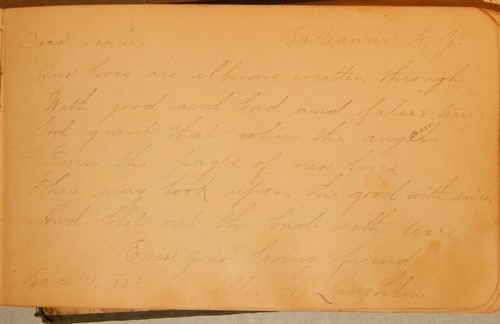 Dear            Matteawan, N. Y.
Our lives are albums written through
With good and bad and false & true.
God grant that when the angels
Turn the pages of our lives
They may look upon the good with smiles
And blot out the bad with tears
Ever your loving friend